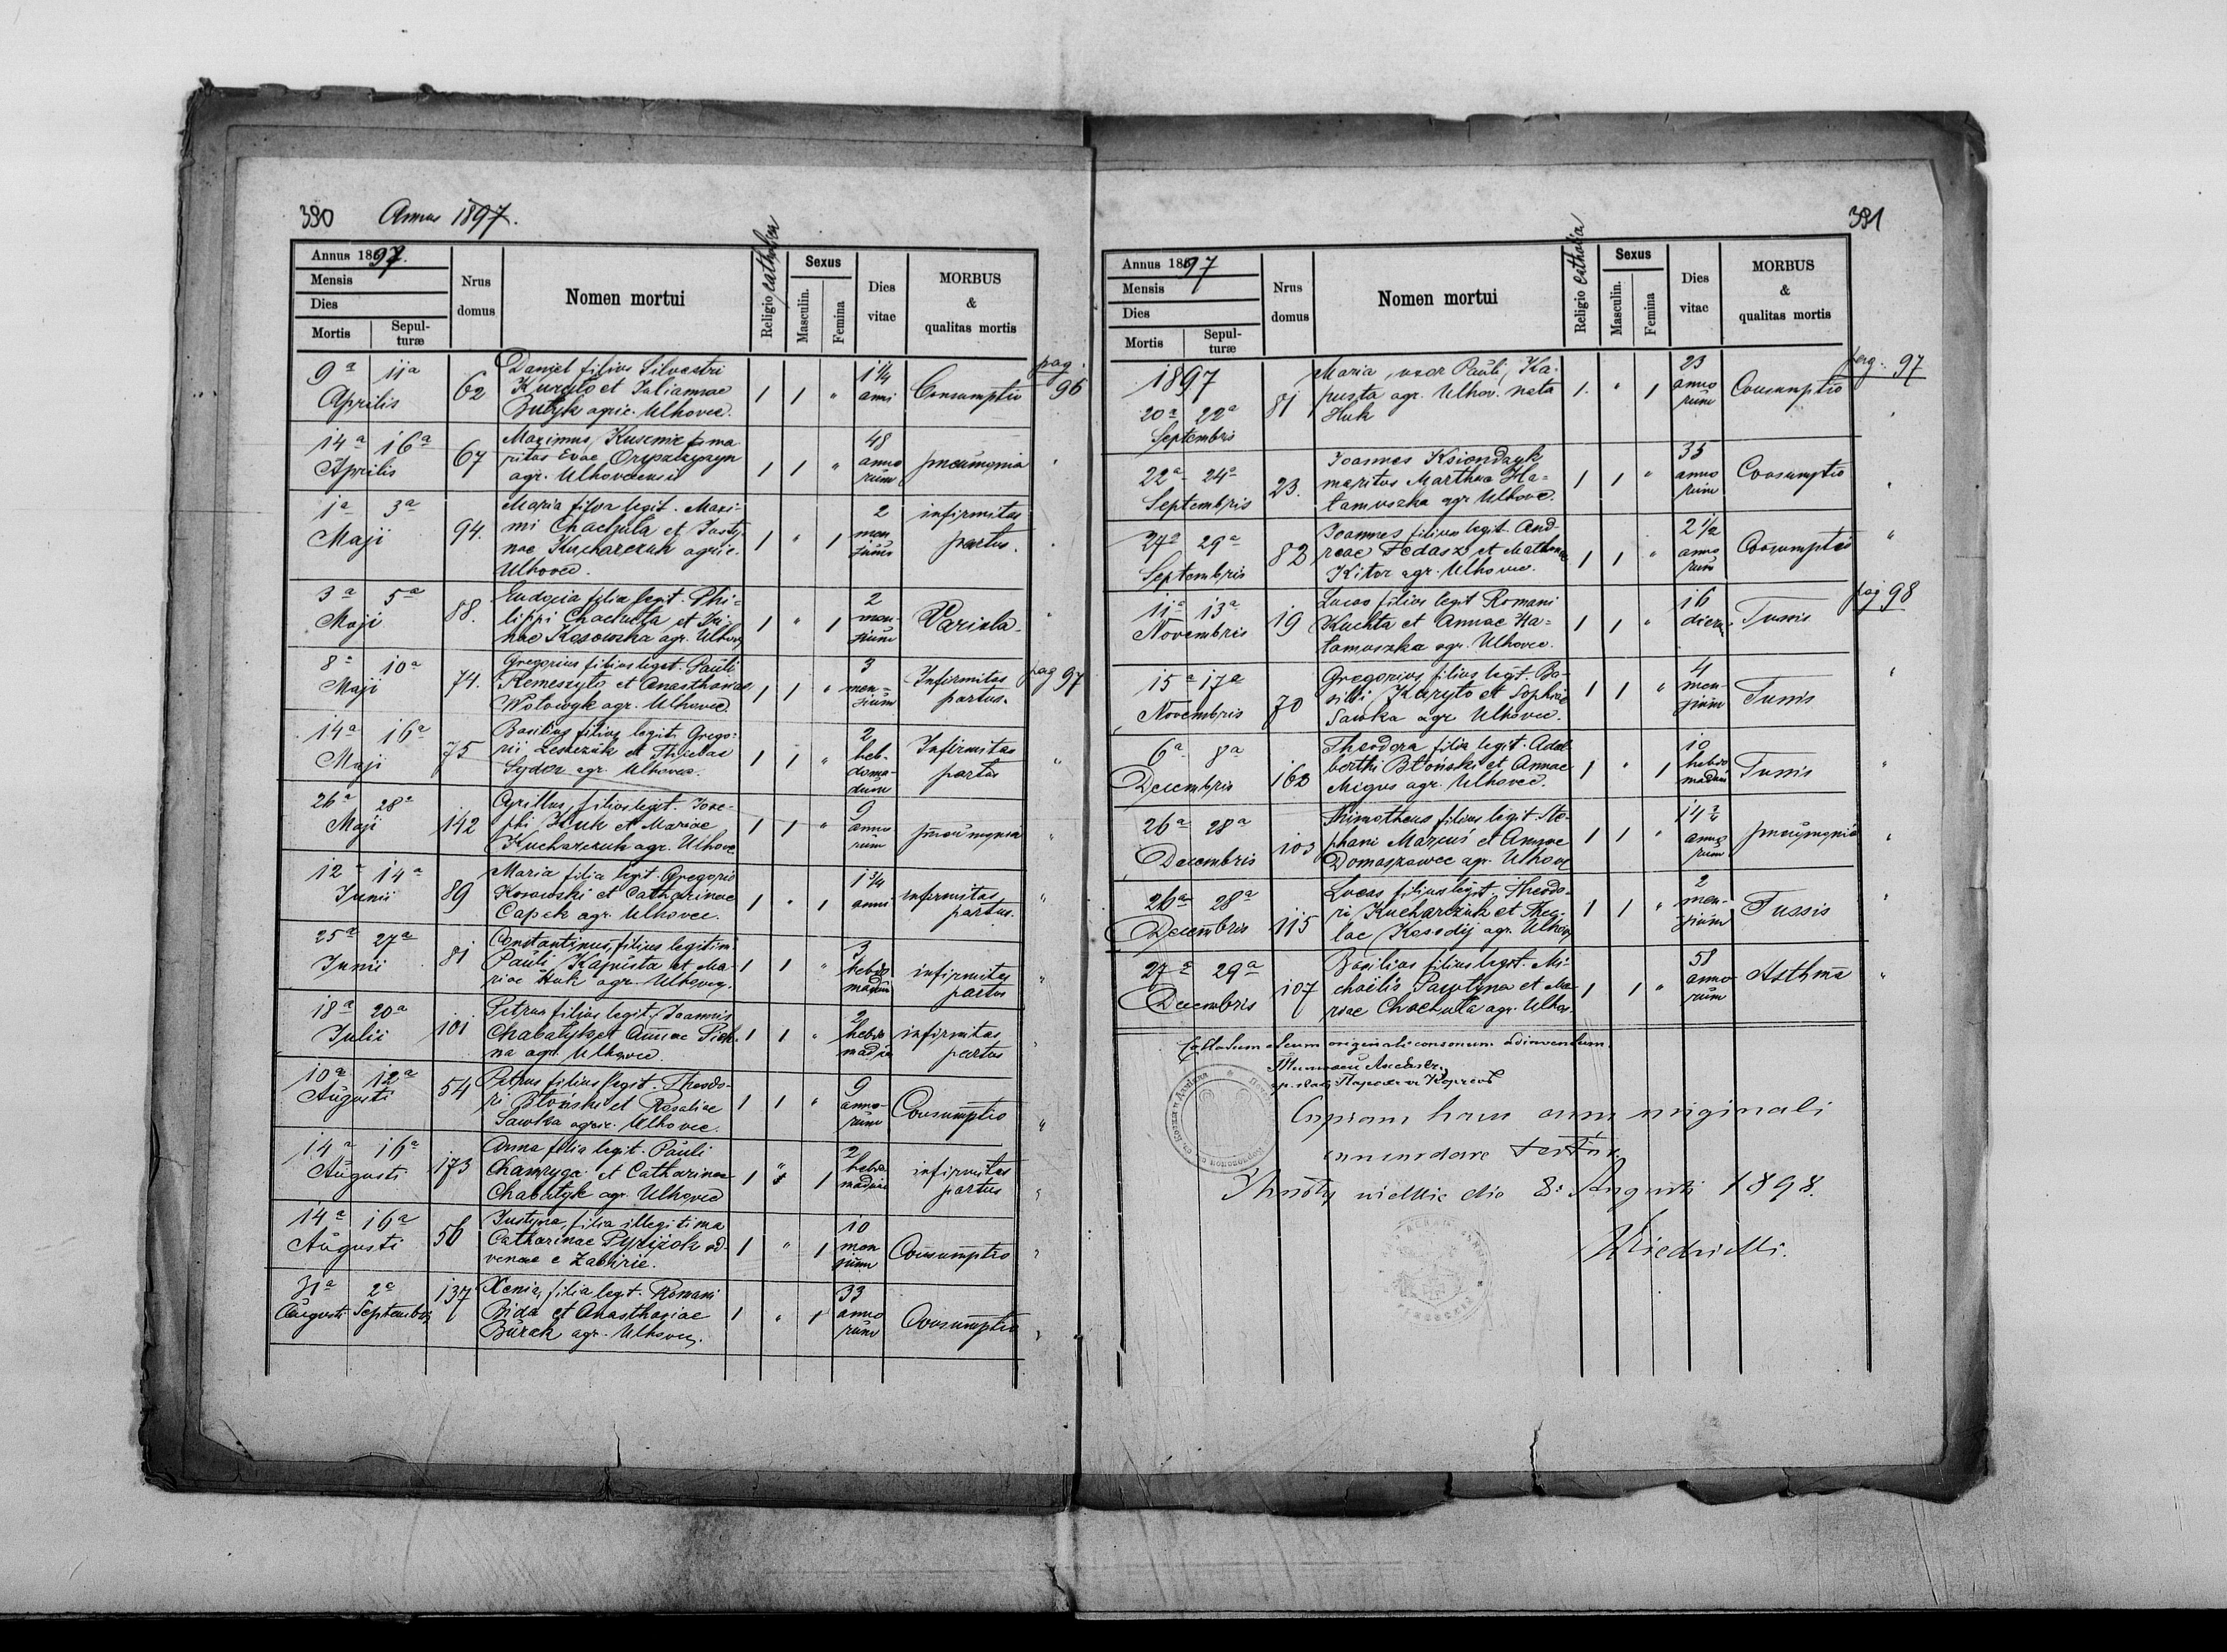 390 Annus 1897.
Annus 1897.
Mensis
Dies
Mortis
Sepul-
turæ
Nrus
domus
Nomen mortui
Religio catholica
Sexus
Masculin.
Femina
Dies
vitae
MORBUS
&
qualitas mortis
pag.
96
9a 11a
Aprilis
62
Daniel filius Silvestri
Kuryło et Julianae
Butyk agric. Ulhovec.
1 1 "
1 1/4
anni
Consumptio
14a 16a
Aprilis
67
Maximus Kusmirz ma
ritus Evae
agr. Ulhovecensis
1 1 "
48
anno
rum
pneumonia
1a 3a
Maji
94.
Maria filia legit. Maxi-
mi Chachuła et Justy-
nae Kucharczuk agric.
Ulhovec.
1 " 1
2
men
sium
infirmitas
partus.
3a 5a
Maji
88.
Eudocia filia legit. Phi-
lippi Chachuła et Iri-
nae Kosowska agr. Ulhov.
1 " 1
2
men-
sium
Variola
8a 10a
Maji
74.
Gregorius filius legit. Pauli
Remeszyło et Anasthasiae
Wołowyk agr. Ulhovec.
1 1 "
3
men-
sium
Infirmitas
partus.
pag 97
14a 16a
Maji
75
Basilius filius legit. Grego-
rii Leszczuk et Theclae
Sydor agr. Ulhovec.
1 1 "
2
heb-
doma-
dum
Infirmitas
partus
26a 28a
Maji
142
Cyrillus, filius legit. Jose-
phi Huk et Mariae
Kucharczuk agr. Ulhove
1 1 "
9
anno
rum
pneumonia
12a 14a
Junii
89
Maria filia legit. Gregorii
Kosowski et Catharinae
Capek agr. Ulhovec.
1 " 1
1 3/4
anni
infirmitas
partus.
25a 27a
Junii
81
Constantinus, filius legitim.
Pauli Kapusta et Ma-
riae Huk agr. Ulhovec.
1 1 "
3
hebdo
madum
infirmitas
partus
18a 20a
Julii
101
Petrus filius legit. Joannis
Chabatyk et Annae Pich
na agr. Ulhovec.
1 1 "
2
hebdo
madum
infirmitas
partus
10a 12a
Augusti
54
Petrus filius legit. Theodo-
ri Błoński et Rosaliae
Sawka agric. Ulhovec.
1 1 "
9
anno-
rum
Consumptio
14a 16a
Augusti
173
Anna filia legit. Pauli
Chamryga et Catharinae
Chabatyk agr. Ulhovec
1 " 1
2
hebdo
madum
infirmitas
partus
14a 16a
Augusti
56
Justyna, filia illegitima
Catharinae Pyziok ad-
venae e Zabirie.
1 " 1
10
men
sium
Consumptio
31a 2a
Augusti Septembris
137
Xenia, filia legit. Romani
Bida et Anasthasiae
Burak agr. Ulhovec.
1 " 1
33
anno
rum
Consumptio
391
Annus 1897
Mensis
Dies
Mortis
Sepul-
turæ
Nrus
domus
Nomen mortui
Religio catholica
Sexus
Masculin.
Femina
Dies
vitae
MORBUS
&
qualitas mortis
pag. 97
1897
20a 22a
Septembris
81
Maria, uxor Pauli Ka-
pusta agr. Ulhov. nata
Huk
1. " 1
23
anno
rum
Consumptio
22a 24a
Septembris
23.
Joannes Ksiondzyk
maritus Marthae Ha-
łamuszka agr Ulhovec.
1 1 "
35
anno
rum
Consumptio
27a 29a
Septembris
82
Joannes filius legit. And-
reae Fedasz et
Kitor agr. Ulhovec.
1 1 "
2 1/2
anno
rum
Consumptio
pag 98
11a 13a
Novembris
19
Lucas filius legit Romani
Kuchta et Annae Ha-
łamuszka agr. Ulhovec.
1 1 "
16
dierum
Tussis
15a 17a
Novembris
70
Gregorius filius legit. Ba-
silii Kuryło et Sophiae
Sawka agr Ulhovec.
1 1 "
4
men-
sium
Tussis
6a 8a
Decembris
162
Theodora filia legit. Adal
berthi Błoński et Annae
Migus agr. Ulhovec.
1 " 1
10
hebdo
madum
Tussis
26a 28a
Decembris
103
Thimotheus filius legit. Ste-
phani Mazuś et Annae
Domaszowec agr. Ulhove
1 1 "
14
anno
rum
pneumonia
26a 28a
Decembris
115
Lucas filius legit. Theodo-
ri Kucharczuk et Thec-
lae Kossdij agr. Ulhov
1 1 "
2
men-
sium
Tussis
27a 29a
Decembris
107
Basilius filius legit. Mi-
chaelis Pawłyna et Ma
riae Chachuła agr. Ulhov.
1 1 "
58
anno
rum
Asthma
Collatum cum originali consonum adinventum.
Copiam hanc cum originali
concordare testor.
die 8. Augusti 1898.